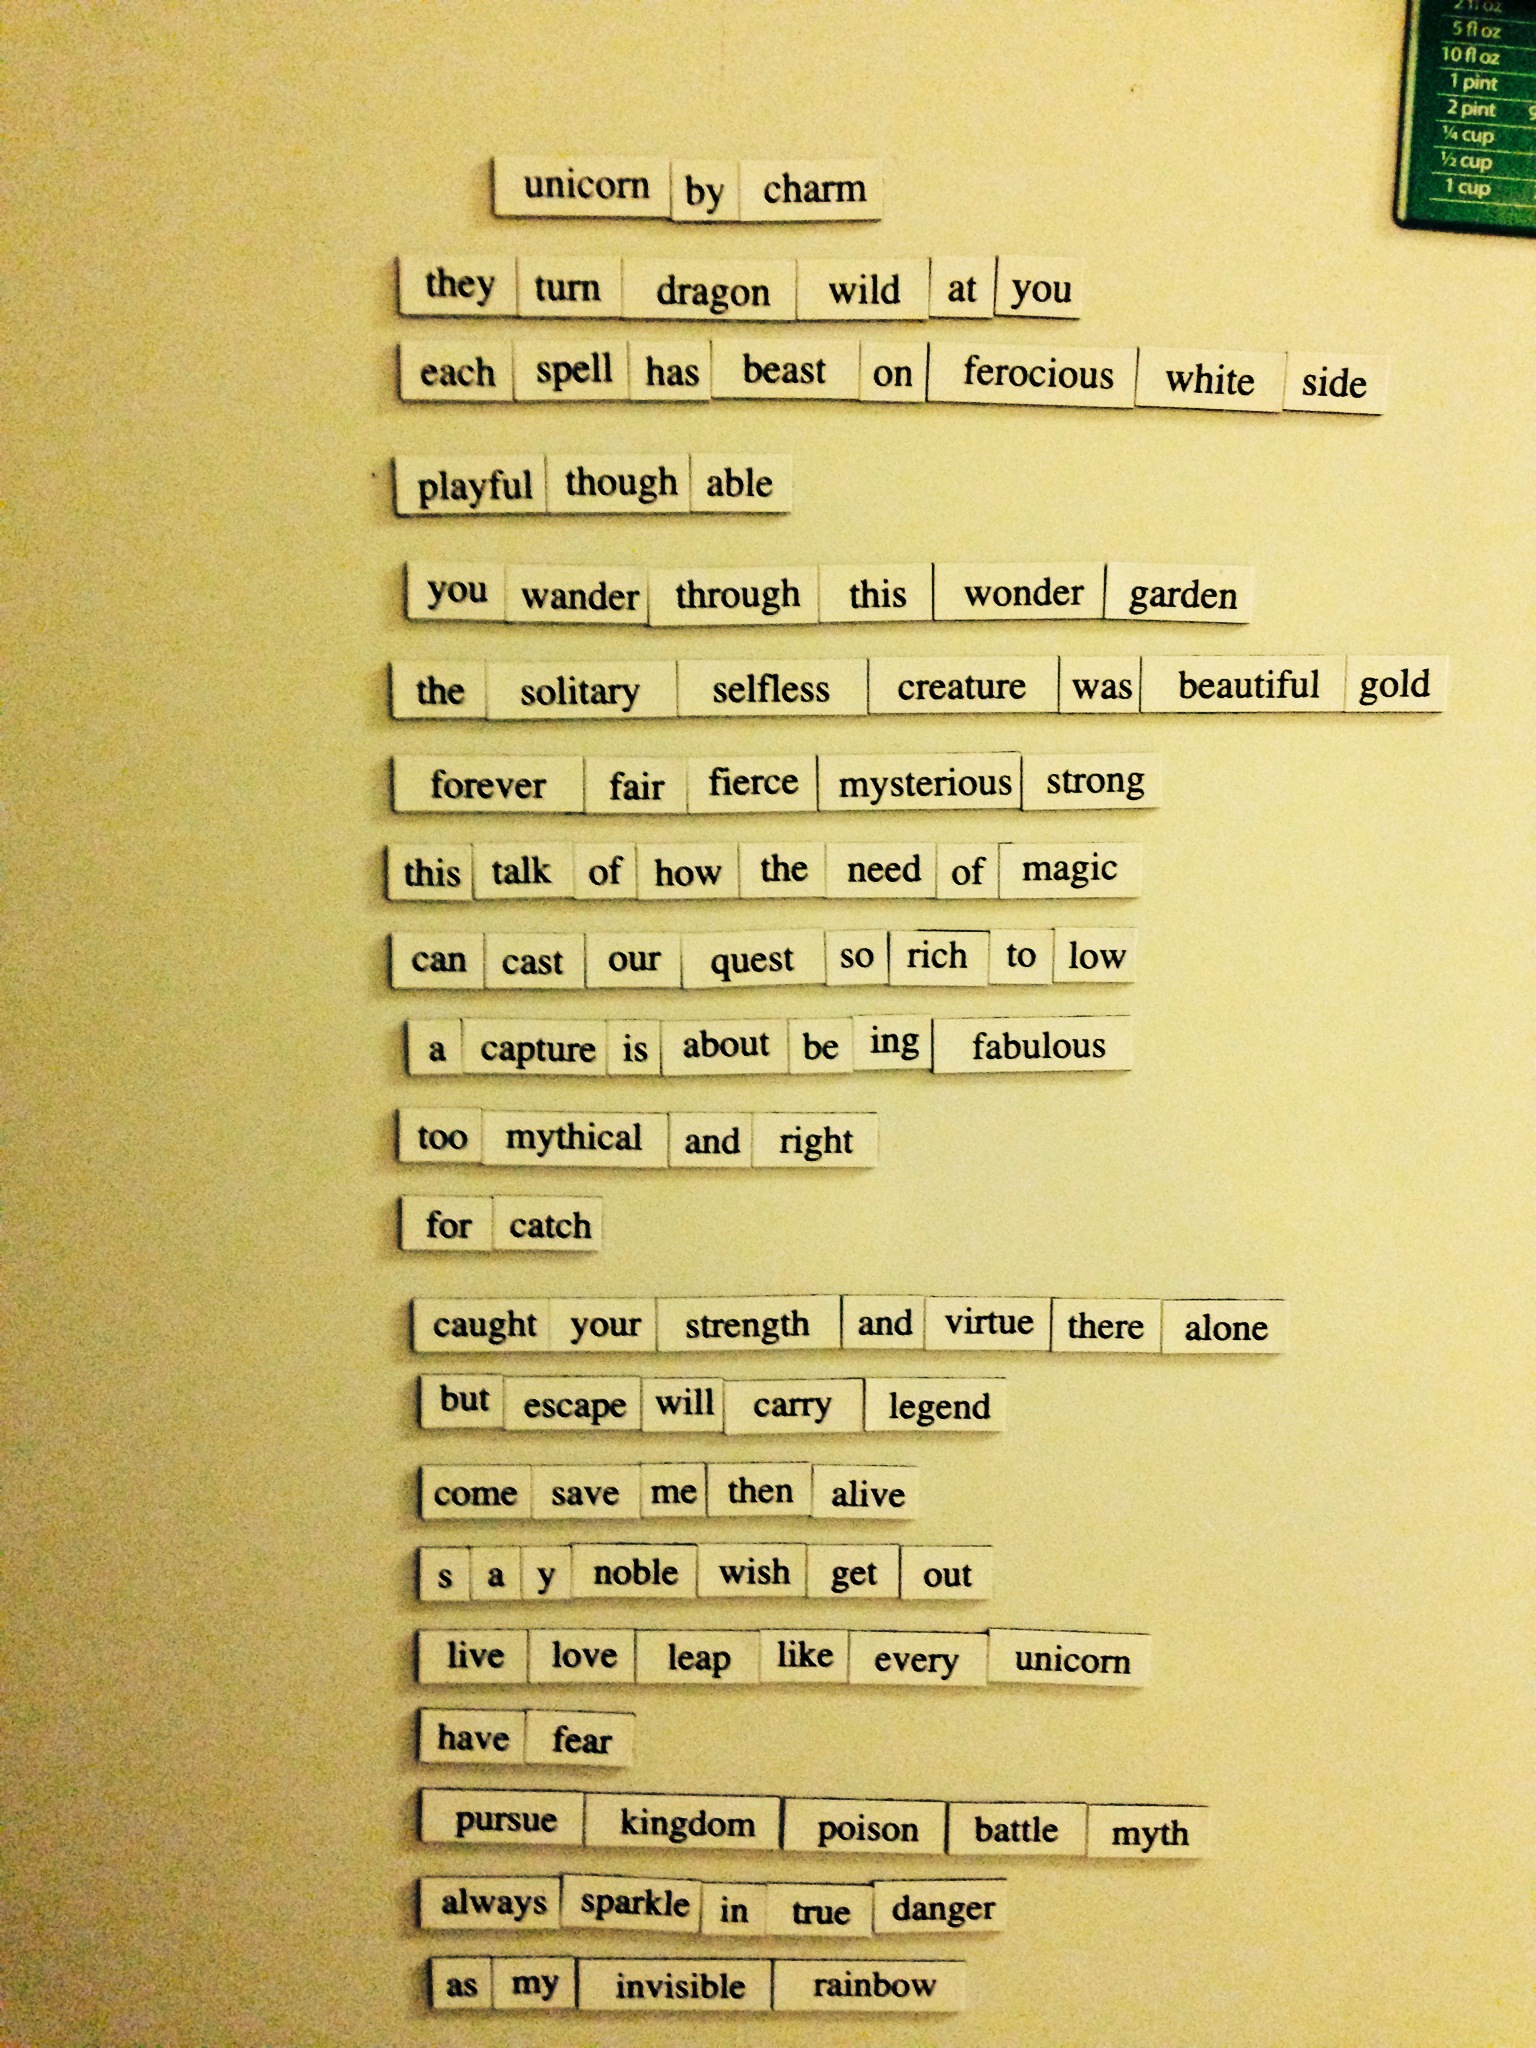 2 fl oz
5 fl oz
10 fl oz
1 pint
2 pint
¼ cup
½ cup
1 cup
unicorn by charm
they turn dragon wild at you
each spell has beast on ferocious white side
playful though able
you wander through this wonder garden
the solitary selfless creature was beautiful gold
forever fair fierce mysterious strong
this talk of how the need of magic
can cast our quest so rich to low
a capture is about be ing fabulous
too mythical and right
for catch
caught your strength and virtue there alone
but escape will carry legend
come save me then alive
s a y noble wish get out
live love leap like every unicorn
have fear
pursue kingdom poison battle myth
always sparkle in true danger
as my invisible rainbow